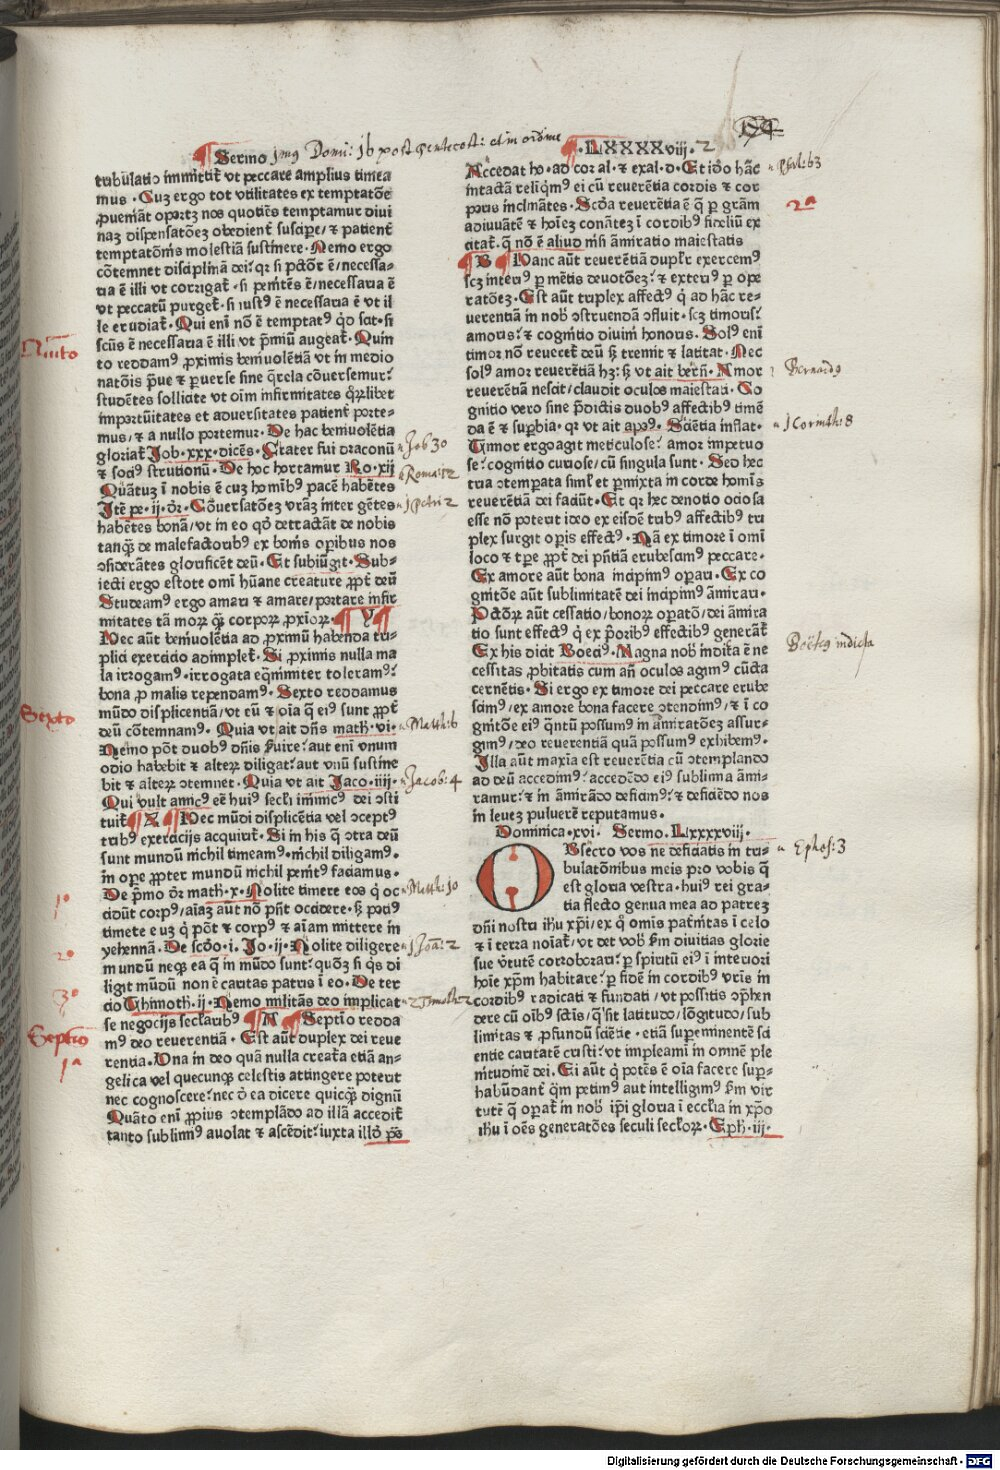 174
Sermo j mus Domi: 16 post Pentecost: et in ordine
·LXXXXviij· 2
tribulatio immittit̃ vt peccare amplius timea
mus · Cuz ergo tot vtilitates ex temptatõe
ꝓueniãt oportz nos quotiẽs temptamur diui
naz dispensatõez obedient̃ suscipe/ ⁊ patient̃
temptatõnis molestiã sustinere · Nemo ergo
cõtemnet disciplinã dei: qr si pctõr ẽ/necessa-
ria ẽ illi vt corrigat̃ · si penitẽs ẽ/necessaria ẽ
vt peccatũ purget̃ · si iustꝰ ẽ necessaria ẽ vt il
le erudiat̃ · Qui eni nõ ẽ temptatꝰ qd scit · si
sciũs ẽ necessaria ẽ illi vt p̃miũ augeat̃ · Quin
Quito
to reddamꝰ ꝓximis beniuolẽtiã vt in medio
natõis p̃ue ⁊ puerse sine q̃rela cõuersemur:
studẽtes sollicite vt oim infirmitates q̃rlibet
importũitates et aduersitates patient̃ porte-
mus/ ⁊ a nullo portemur · De hac beniuolẽtia
gloriat̃ Job · xxx · dicẽs · Frater fui draconũ
Job 30
⁊ sociꝰ strutionũ · De hoc hortamur Ro · xij
Roma: 12
Quãtuz i nobis ẽ cuz hominibꝰ pacẽ habẽtes
Itẽ pe · ij · dr̃ · Cõuersatõez vr̃az inter gẽtes
1 Petri 2
habẽtes bonã/vt in eo qd detractãt de nobis
tanq̃ꝫ de malefactoribꝰ ex bonis oꝑibus nos
ꝯsiderãtes glorificẽt deũ · Et subiũgit · Sub-
iecti ergo estote omi hũane creature ꝓpt̃ deũ
Studeamꝰ ergo amari ⁊ amare/portare infir
mitates tã morꝝ q̃ꝫ corporꝝ ꝓxiorꝝ · Y
Nec aũt beniuolẽtia ad ꝓximũ habenda tri-
plici exercicio adimplet̃ · Si ꝓximis nulla ma
la irrogamꝰ · irrogata eq̃nimiter toleramꝰ:
bona ꝓ malis rependamꝰ · Sexto reddamus
Sexto
mũdo displicentiã/ vt eũ ⁊ oĩa q̃ eiꝰ sunt ꝓpt̃
deũ cõtemnamꝰ · Quia vt ait dñs math · vi ·
Matth: 6
Nemo põt duobꝰ dñis ẜuire: aut eni vnum
odio habebit ⁊ alterꝝ diligat: aut vnũ sustine
bit ⁊ alterꝝ ꝯtemnet · Quia vt ait Jaco · iiij ·
Jacob: 4
Qui vult amicꝰ eẽ huiꝰ secli inimicꝰ dei ꝯsti
tuit̃ Z Nec mũdi displicẽtia vel ꝯceptꝰ
tribꝰ exercicijs acquirit̃ · Si in his q̃ ꝯtra deũ
sunt mundũ nichil timeamꝰ · nichil diligamꝰ ·
in ope ꝓpter mundũ nichil penit̃ faciamus ·
De p̃mo dr̃ math · x · Nolite timere eos q̃ oc
Matth: 10
1º
cidũt corpꝰ/aĩaz aũt nõ pñt occidere · sꝫ potiꝰ
timete euz q̃ põt ⁊ corpꝰ ⁊ aĩam mittere in
yehennã · De scõo · i · Jo · ij · Nolite diligere
1 Joã: 2
2º
mundũ neqꝫ ea q̃ in mũdo sunt: quõz si q̃s di
ligit mũdũ non ẽ caritas patris i eo · De ter
3º
cio Thimoth · ij · Nemo militãs deo implicat
2 Timoth: 2
se negocijs seclaribꝰ A Septio redda
Septio
mꝰ deo reuerentiã · Est aũt duplex dei reue
1ª
rentia · Una in deo quã nulla creata etiã an-
gelica vel quecunqꝫ celestis attingere poterit
nec cognoscere: nec õ ea dicere quicq̃ꝫ dignũ
Quãto eni ꝓpius ꝯtemplãdo ad illã accedit̃
tanto sublimiꝰ auolat ⁊ ascẽdit: iuxta illõ ps̃
Accedat ho · ad cor al · ⁊ exal · d · Et idõ hãc
Psal: 63
intactã reliq̃mꝰ ei cũ reuerẽtia cordis ⁊ cor
poris inclinãtes · Scõa reuerẽtia ẽ q̃ p gr̃am
2ª
adiuuãtẽ ⁊ hoĩez conãtez i cordibꝰ fideliũ ex
citat̃ · q̃ nõ ẽ aliud nisi ãmiratio maiestatis
B Hanc aũt reuerẽtiã duplr̃ exercemꝰ
scꝫ interiꝰ p mẽtis deuotõez: ⁊ exteriꝰ p ope
ratõez · Est aũt triplex affectꝰ q̃ ad hãc re-
uerentiã in nob̃ ꝯstruendã ꝯfluit · scꝫ timoris:
amoris: ⁊ cognitio diuini honoris · Solꝰ eni
timor nõ reueret̃ deũ sꝫ tremit ⁊ latitat · Nec
solꝰ amor reuerẽtiã hꝫ: sꝫ vt ait berñ · Amor
Bernardꝰ
reuerẽtiã nescit/claudit oculos maiestati · Co
gnitio vero sine p̃dictis duobꝰ affectibꝰ timẽ
da ẽ ⁊ suꝑbia · qr vt ait apꝰs · Sciẽtia inflat ·
1 Corinth: 8
Timor ergo agit meticulose: amor impetuo
se: cognitio curiose/cũ singula sunt · Sed hec
tria ꝯtemperata simĺ et ꝑmixta in corde homis
reuerẽtiã dei faciũt · Et qr hec deuotio ociosa
esse nõ poterit ideo ex eisdẽ tribꝰ affectibꝰ tri
plex surgit oꝑis effectꝰ · Nã ex timore i omi
loco ⁊ tpe ꝓpt̃ dei pñtiã erubescimꝰ peccare ·
Ex amore aũt bona incipimꝰ oꝑari · Ex co
gnitõe aũt sublimitatẽ dei incipimꝰ ãmirari ·
Pctõꝝ aũt cessatio/bonoꝝ oꝑatõ/dei ãmira
tio sunt effectꝰ q̃ ex p̃oribꝰ effectibꝰ generãt̃
Ex his dicit Boeciꝰ · Magna nob̃ indicta ẽ ne
Boëtiꝰ indicta
cessitas ꝓbitatis cum añ oculos agimꝰ cũcta
cernẽtis · Si ergo ex timore dei peccare erube
scimꝰ/ex amore bona facere ꝯtendimꝰ/ ⁊ i co
gnitõe eiꝰ q̃ntũ possumꝰ in ãmiratõez assur-
gimꝰ/deo reuerentiã quã possumꝰ exhibemꝰ ·
Illa aũt maxia est reuerẽtia cũ ꝯtemplando
ad deũ accedimꝰ: accedẽdo eiꝰ sublimia ãmi-
ramur: ⁊ in ãmirãdo deficimꝰ: ⁊ deficiẽdo nos
in leuez puluerẽ reputamus ·
Dominica · xvi · Sermo · Lxxxxviij ·
OBsecro vos ne deficiatis in tri-
Ephes: 3
bulatõnibus meis pro vobis q̃
est gloria vestra · huiꝰ rei gra-
tia flecto genua mea ad patrez
dñi nostri ihũ xp̃i/ ex q̃ omis patr̃nitas i celo
⁊ i terra noĩat̃/vt det vob̃ ẜm diuitias glorie
sue v̓tutẽ corroborari: p spiritũ eiꝰ i interiori
hoĩe xp̃m habitare: p fidẽ in cordibꝰ vr̃is in
cordibꝰ radicati ⁊ fundati /vt possitis ꝯp̃hen
dere cũ oĩbꝰ sc̃tis/q̃ sit latitudo/lõgitudo/sub
limitas ⁊ ꝓfundũ sciẽtie · etiã supeminentẽ sci
entie caritatẽ cristi: vt impleami in omnẽ ple
nitudinẽ dei · Ei aũt q̃ potẽs ẽ oĩa facere suꝑ-
habũdant̃ q̃m petimꝰ aut intelligimꝰ ẜm vir
tutẽ q̃ oꝑat̃ in nob̃ ip̃i gloria i eccĺia in xp̃o
ihũ i oẽs generatões seculi seclorꝝ · Eph · iij ·
Digitalisierung gefördert durch die Deutsche Forschungsgemeinschaft - DFG